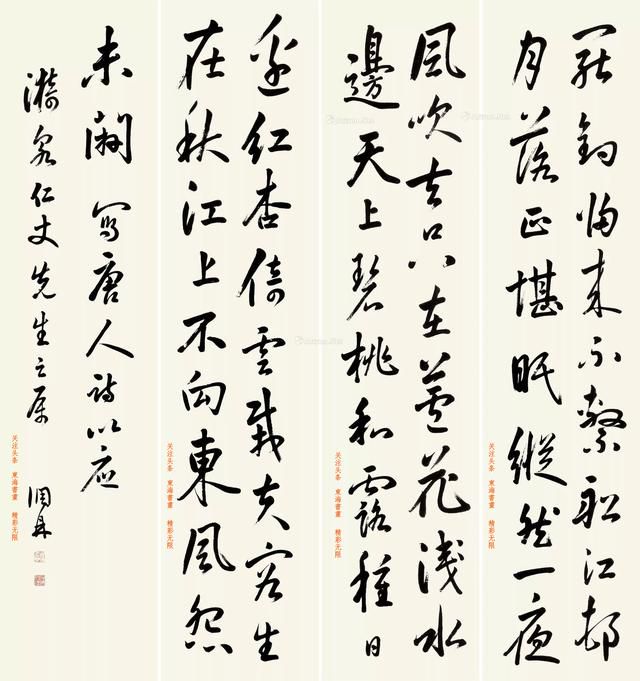 罷釣歸來不繫船江邨
月落正堪眠縱然一夜
风吹去只在蘆花淺水
邊天上碧桃和露種日
边紅杏倚雲栽夫容生
在秋江上不向東風怨
未開寫唐人詩以應
漪泉仁丈先生之屬
关注头条 東海書畫 精彩无限
关注头条 東海書畫 精彩无限
关注头条 東海書畫 精彩无限
关注头条 東海書畫 精彩无限